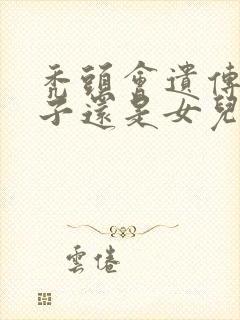 禿頭會遺傳
子還是女兒
雲倦